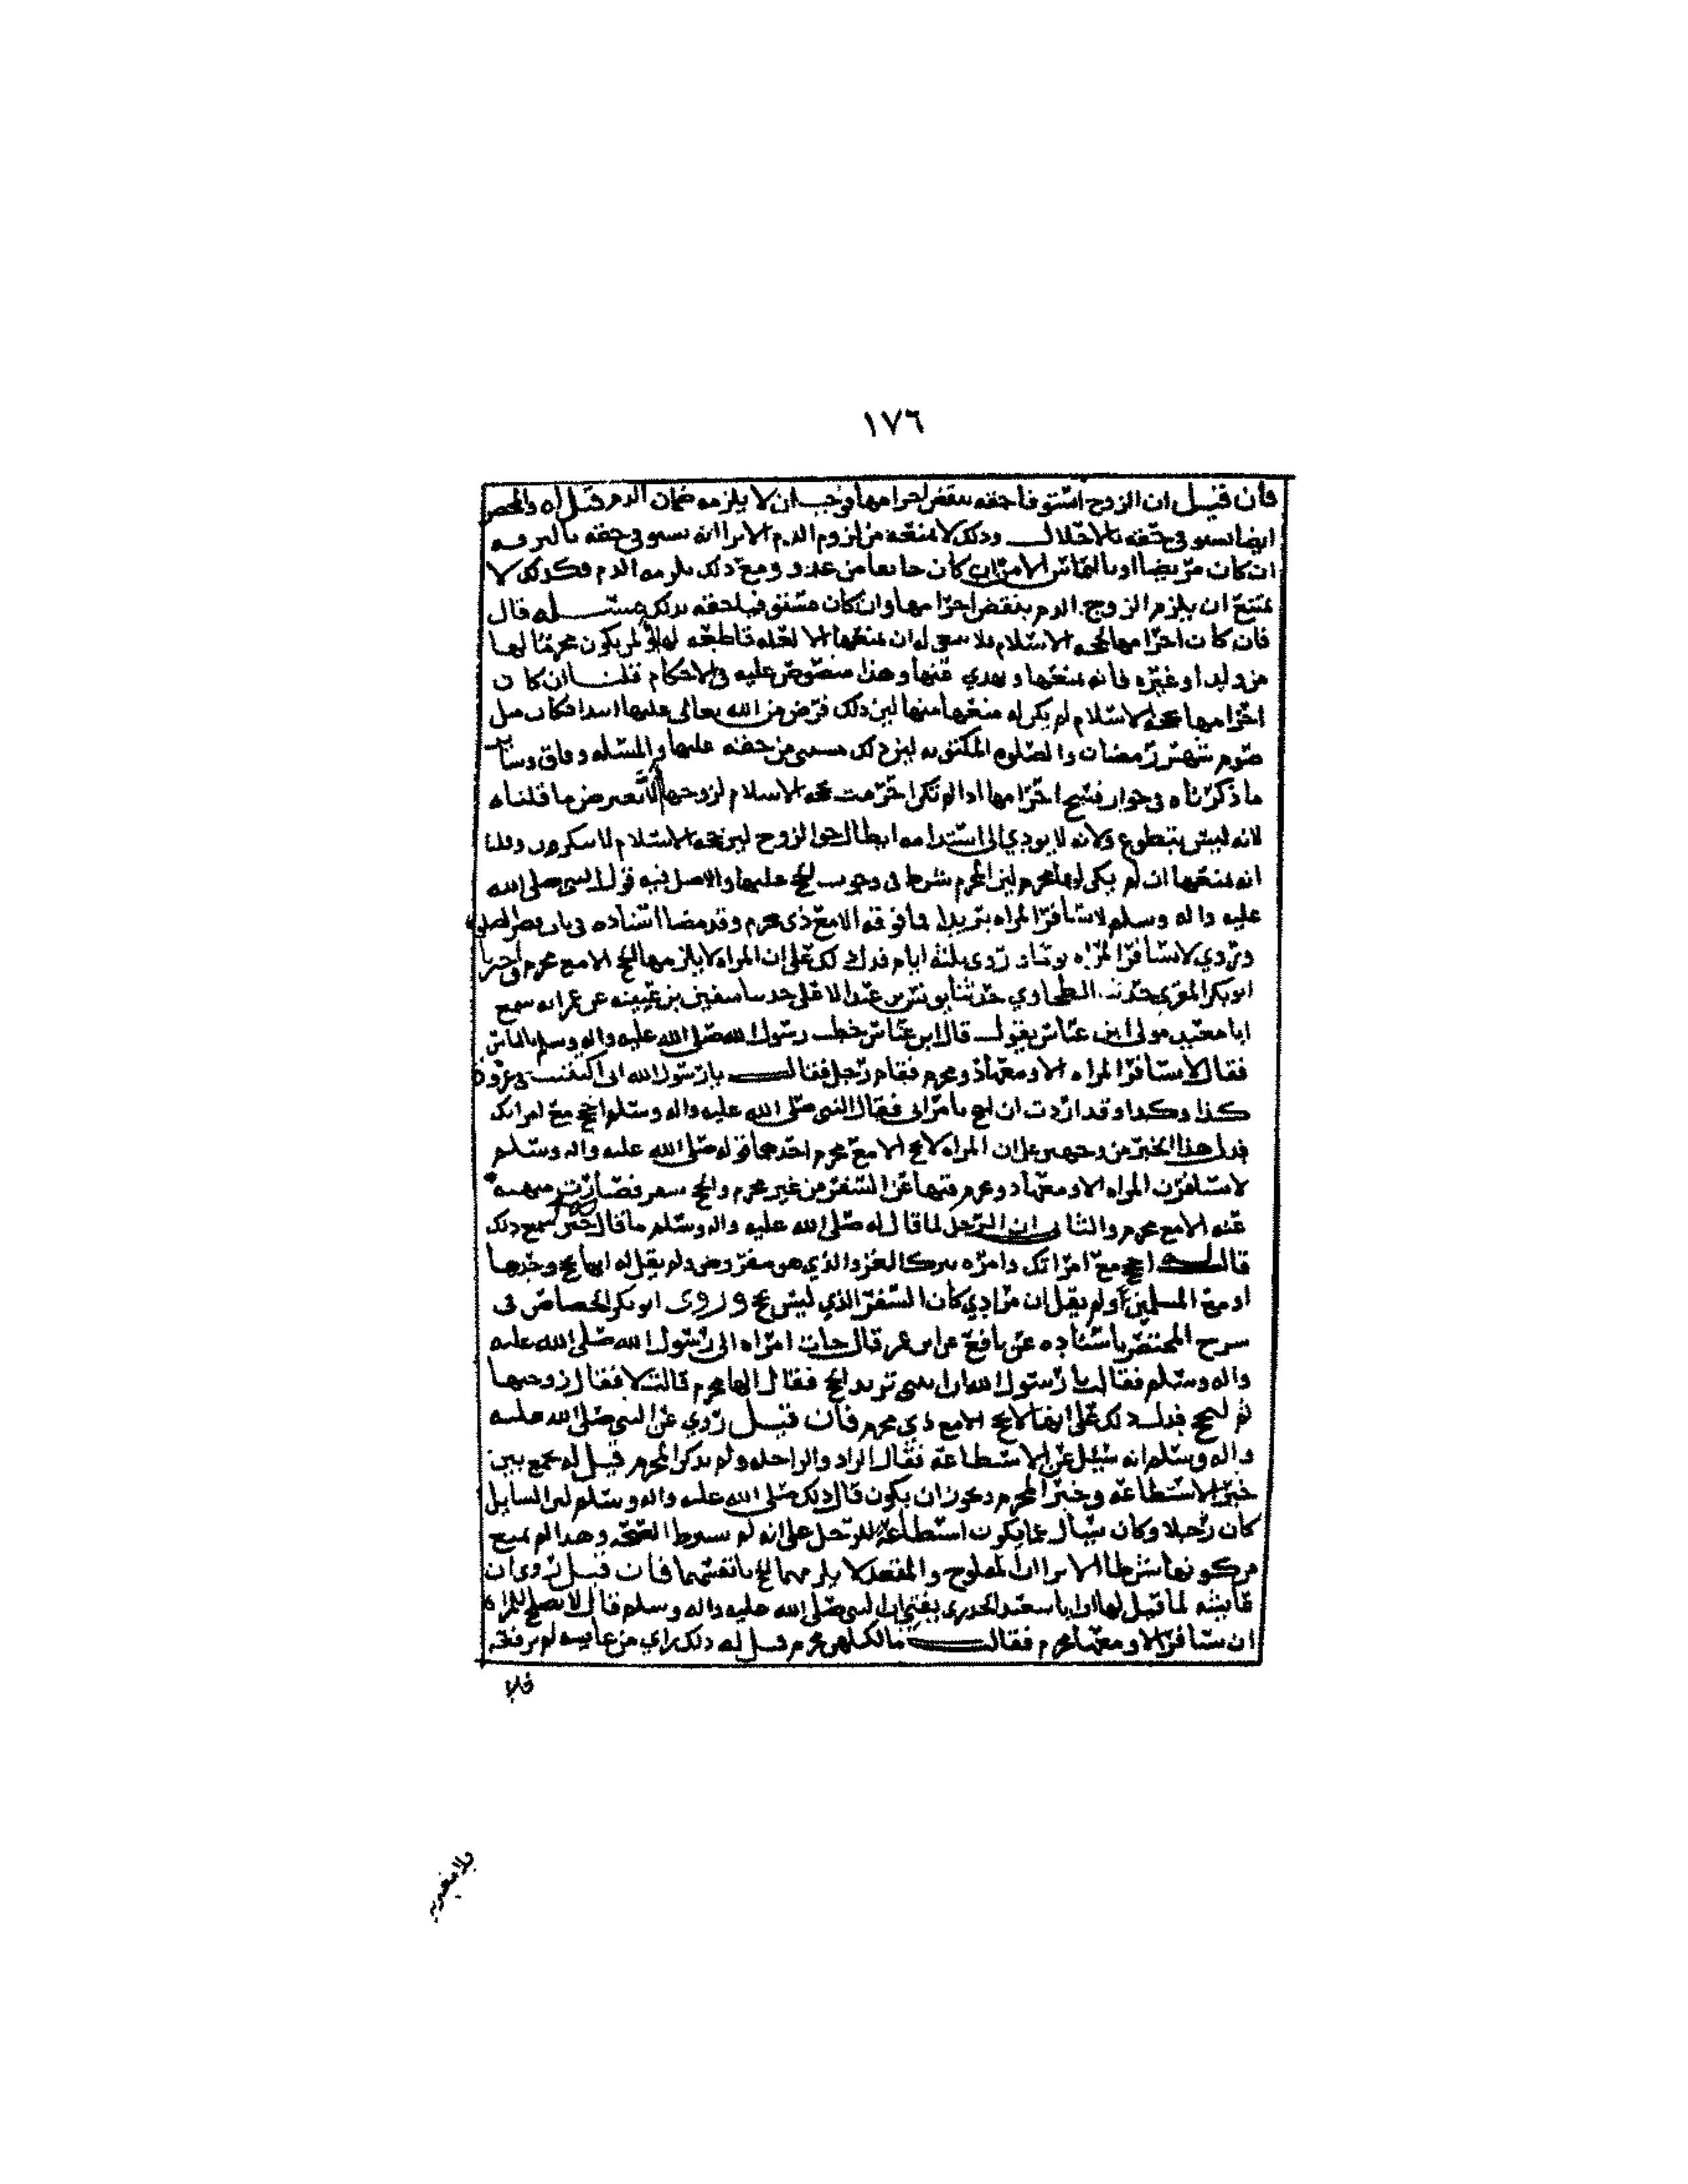 ١٧٦
فان قيل ان الزوج استوفا حقه بنقض احرامها فوجب ان لا يلزمه ضمان الدم قيل له والمحصر
ايضا يستوفي حقه بالاحلال وذلك لا يمنعه من لزوم الدم الا ترا انه يستوفي حقه بالترفه
ان كان مريضا او بالتماس الامن ان كان خايفا من عدو ومع ذلك يلزمه الدم فكذلك لا
يمتنع ان يلزم الزوج الدم بنقض احرامها وان كان مستوفيا لحقه بذلك مسئلـه قال
فان كانت احرامها لحجه الاسلام فلا ينبغي له ان يمنعها الا لعله قاطعه لها او لم يكون محرما لها
من ولد او غيره فانه يمنعها ويهدي عنها وهذا منصوص عليه في الاحكام قلنا ان كان
احرامها بحجه الاسلام لم يكن له منعها منها لان ذلك فرض من الله تعالى عليها ابتدا فكان مثل
صوم شهر رمضان والصلوه المكتوبه لان ذلك مستثنى من حقه عليها والمسئله وفاق وساير
ما ذكرناه في جواز فسخ احرامها اذا لم تكن احرمت بحجه الاسلام لزوجها لا يعترض ما قلناه
لانه ليس بتطوع ولانه لا يودي الى استدامه ابطال حق الزوج لان حجه الاسلام لا تتكرر وقلنا
انه يمنعها ان لم يكن لها محرم لان المحرم شرط في وجوب الحج عليها والاصل فيه قول النبي صلى الله
عليه واله وسلم لا تسافر المراه بريدا فما فوقه الا مع ذي محرم وقد مضا اسناده في باب قصر الصلوه
وروي لا تسافر المراه يوما وروى ثلثه ايام فدل ذلك على ان المراه لا يلزمها الحج الا مع محرم واخبرنا
ابو بكر المقري حدثنا الطحاوي حدثنا يونس بن عبد الاعلى حدثنا سفين بن عيينه عن عمر انه سمع
ابا معبد مولى ابن عباس يقول قال ابن عباس خطب رسول الله صلى الله عليه واله وسلم الناس
فقال لا تسافر المراه الا ومعها ذو محرم فقام رجل فقال يا رسول الله اني اكتتبت في غزوه
كذا وكذا وقد اردت ان احج بامراتي فقال النبي صلى الله عليه واله وسلم احج مع امراتك
فدل هذا الخبر من وجهين على ان المراه لا تحج الا مع محرم احدهما قوله صلى الله عليه واله وسلم
لا تسافرن المراه الا ومعها ذو محرم فنهاها عن السفر من غير محرم والحج سفر فصارت منهيه
عنه الا مع محرم والثاني ان الرجل لما قال له صلى الله عليه واله وسلم ما قال حين سمع ذلك
قال احج مع امراتك وامره بترك الغزو الذي هو مفروض ولم يقل له انها تحج وحدها
او مع المسلمين او لم يقل ان مرادي كان السفر الذي ليس بحج وروى ابو بكر الجصاص في
شرح المختصر باسناده عن نافع عن ابن عمر قال جات امراه الى رسول الله صلى الله عليه
واله وسلم فقالت يا رسول الله ان ابنتي تريد الحج فقال الها محرم قالت لا فقال زوجيها
ثم لتحج فدل ذلك على انها لا تحج الا مع ذي محرم فان قيل روي عن النبي صلى الله عليه
واله وسلم انه سئل عن الاستطاعة فقال الزاد والراحله ولم يذكر المحرم قيل له نجمع بين
خبر الاستطاعه وخبر المحرم ويجوز ان يكون قال ذلك صلى الله عليه واله وسلم لان السايل
كان رجلا وكان يسال عما يكون استطاعة للرجل على انه لم يشرط الصحه وهذا لم يمنع
من كونها شرطا الا ترا ان المفلوج والمقعد لا يلزمهما الحج بانفسهما فان قيل روي ان
عايشه لما قيل لها ان ابا سعيد الخدري يفتي ان النبي صلى الله عليه واله وسلم قال لا يصلح للمراه
ان تسافر الا ومعها محرم فقالت ما لكلهن محرم قيل له ذلك راي من عايشه لم ترفعه
فلا